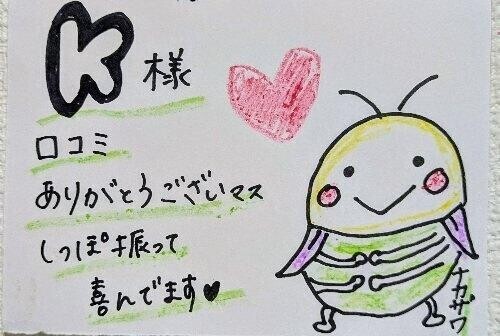 K 様
口コミ
ありがとうございマス
しっぽ振って
喜んでます♥
ナカザワ